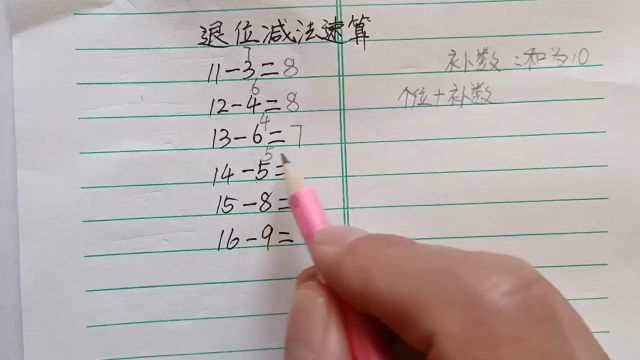 退位减法速算
7
11-3=8
6
12-4=8
4
13-6=7
5
14-5=
15-8=
16-9=
补数:和为10
个位+补数